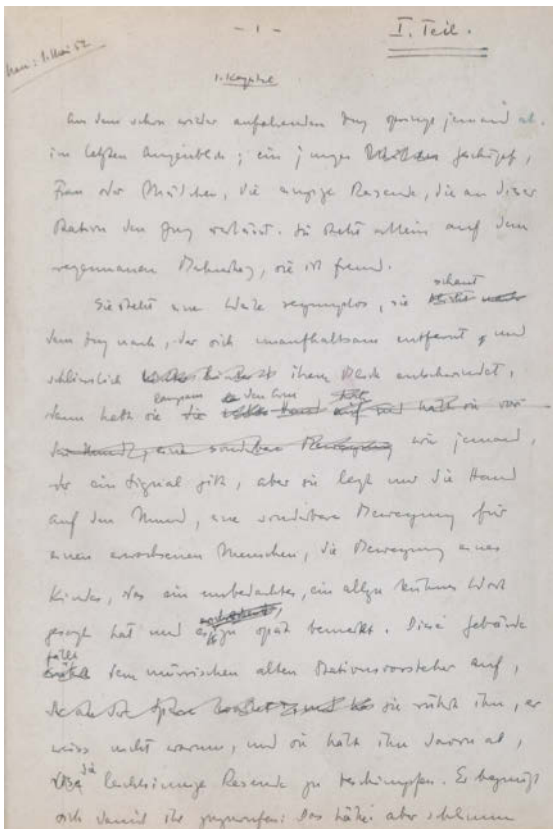 - 1 -
I. Teil.
1. Kapitel
Aus dem schon wieder anfahrenden Zug springt jemand ab.
im letzten Augenblick; ein junges Geschöpf,
Frau oder Mädchen, die einzige Reisende, die an dieser
Station den Zug verlässt. Sie steht allein auf dem
regennassen Bahnsteig, sie ist fremd.
Sie steht eine Weile regungslos, sie schaut
dem Zug nach, der sich unaufhaltsam entfernt, und
schliesslich ihrem Blick entschwindet,
dann hebt sie langsam den Arm
wie jemand,
der ein Signal gibt, aber sie legt nur die Hand
auf den Mund, eine sonderbare Bewegung für
einen erwachsenen Menschen, die Bewegung eines
Kindes, das ein unbedachtes, ein allzu kühnes Wort
gesagt hat und es zu spät bemerkt. Diese Gebärde
fällt dem mürrischen alten Stationsvorsteher auf,
sie rührt ihn, er
weiss nicht warum, und sie hält ihn davon ab,
die leichtsinnige Reisende zu beschimpfen. Er begnügt
sich damit ihr zuzurufen: Das hätte aber schlimm